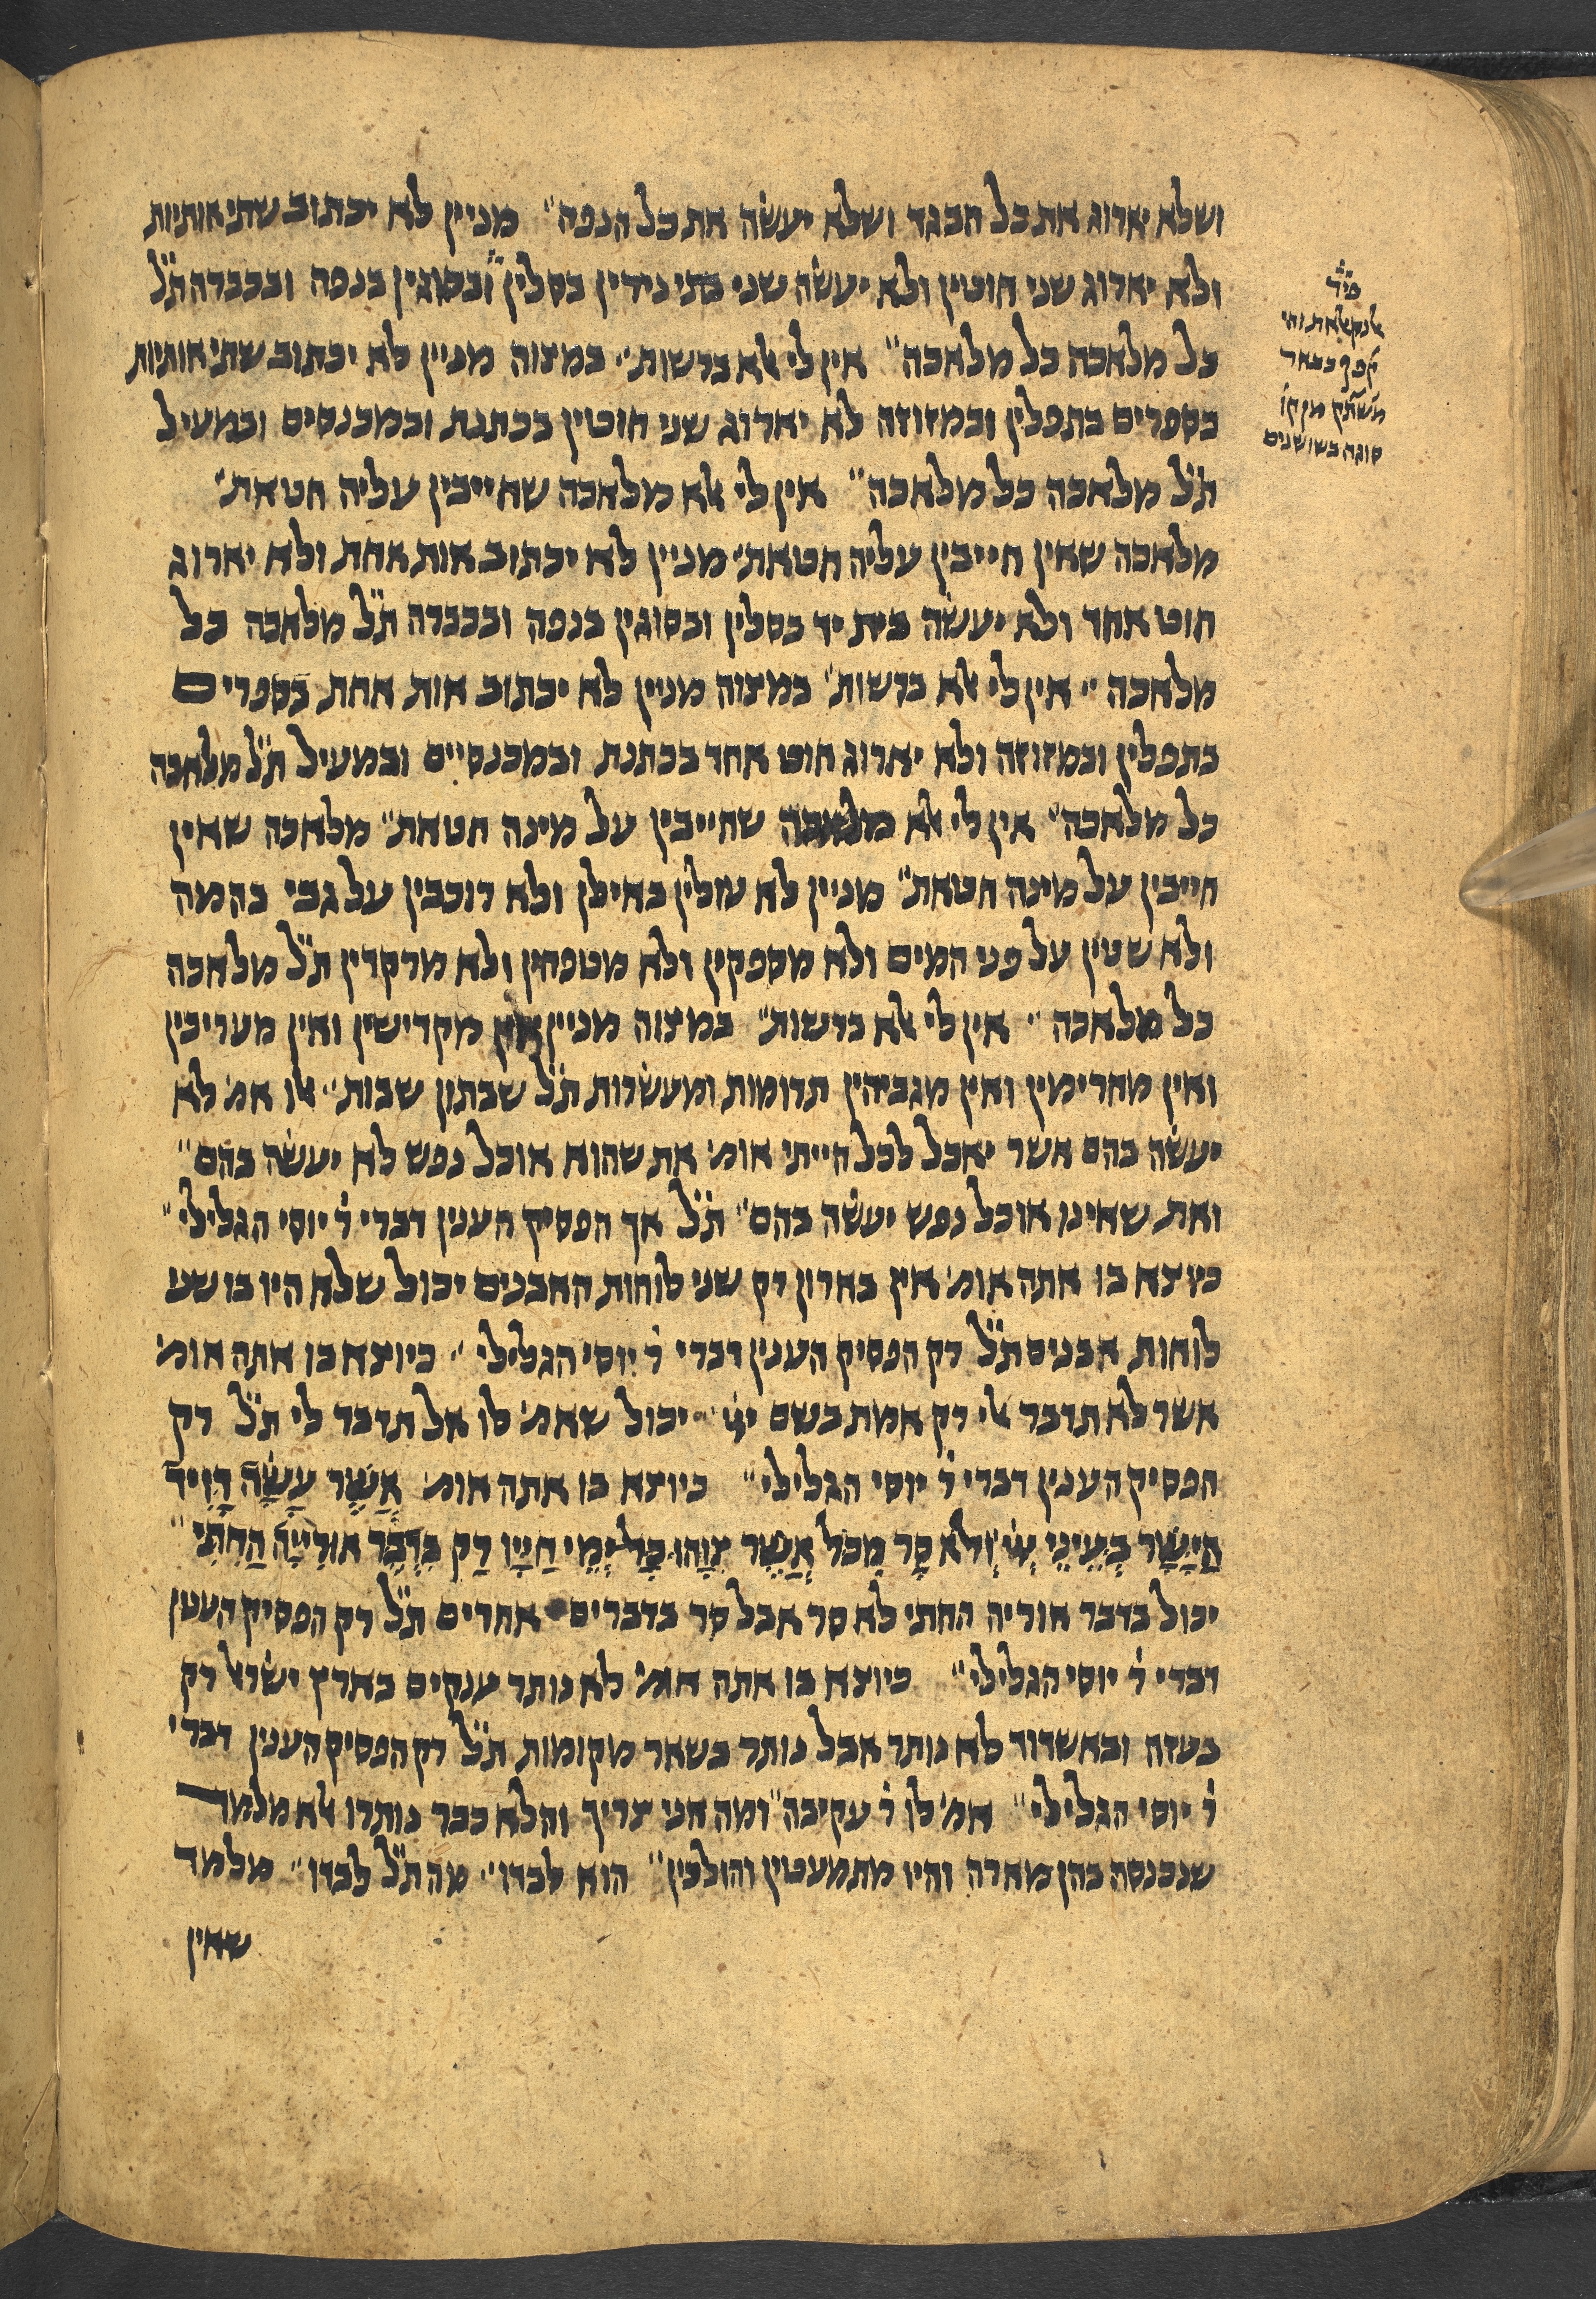 ושלא יארוג את כל הבגד ושלא יעשה את כל הנפה״ מניין לא יכתוב שתי אותיות
ולא יארוג שני חוטין ולא יעשה שני בתי נידין בסלין ובסוגין בנפה ובכברה ת״ל
כל מלאכה כל מלאכה״ אין לי אלא ברשות״ במצוה מניין לא יכתוב שתי אותיות
בספרים בתפלין ובמזוזה לא יארוג שני חוטין בכתנת ובמכנסים ובמעיל
ת״ל מלאכה כל מלאכה״ אין לי אלא מלאכה שחייבין עליה חטאת״
מלאכה שאין חייבין עליה חטאת״ מניין לא יכתוב אות אחת ולא יארוג
חוט אחד ולא יעשה בית יד בסלין ובסוגין בנפה ובכברה ת״ל מלאכה כל
מלאכה״ אין לי אלא ברשות״ במצוה מניין לא יכתוב אות אחת בספרים
בתפלין ובמזוזה ולא יארוג חוט אחד בכתנת ובמכנסיים ובמעיל ת״ל מלאכה
כל מלאכה״ אין לי אלא מלאכה שחייבין על מינה חטאת״ מלאכה שאין
חייבין על מינה חטאת״ מניין לא עולין באילן ולא רוכבין על גבי בהמה
ולא שטין על פני המים ולא מספקין ולא מטפחין ולא מרקדין ת״ל מלאכה
כל מלאכה״ אין לי אלא ברשות״ במצוה מניין אין מקדישין ואין מעריכין
ואין מחרימין ואין מגביהין תרומות ומעשרות ת״ל שבתון שבות״ אלו אמ׳ לא
יעשה בהם אשר יאכל לכל הייתי אומ׳ את שהוא אוכל נפש לא יעשה בהם״
ואת שאינו אוכל נפש יעשה בהם״ ת״ל אך הפסיק הענין דברי ר׳ יוסי הגלילי״
כיוצא בו אתה אומ׳ אין בארון רק שני לוחות האבנים יכול שלא היו בו שני
לוחות אבנים ת״ל רק הפסיק הענין דברי ר׳ יוסי הגלילי״ כיוצא בו אתה אומ׳
אשר לא תדבר אלי רק אמת בשם ייי יכול שאמ׳ לו אל תדבר לי ת״ל רק
הפסיק הענין דברי ר׳ יוסי הגלילי״ כיוצא בו אתה אומ׳ אֲשֶׁר עָשָׂה דָוִיד
הַיָּשָׁר בְּעֵינֵי ייי וְלֹא סָר מִכֹּל אֲשֶׁר צִוָּהוּ כָּל יְמֵי חַיָּיו רַק בִּדְבַר אוּרִיָּיה הַחִתִּי״
יכול בדבר אוריה החתי לא סר אבל סר בדברים אחרים ת״ל רק הפסיק הענין
דברי ר׳ יוסי הגלילי״ כיוצא בו אתה אומ׳ לא נותר ענקים בארץ ישראל רק
בעזה ובאשדוד לא נותר אבל נותר בשאר מקומות ת״ל רק הפסיק הענין דברי
ר׳ יוסי הגלילי״ אמ׳ לו ר׳ עקיבה״ ומה אני צריך והלא כבר נותרו אלא מלמד
שנכנסה בהן מארה והיו מתמעטין והולכין״ הוא לבדו״ מה ת״ל לבדו״ מלמד
שאין
פי״ר
סוגה בשושנים